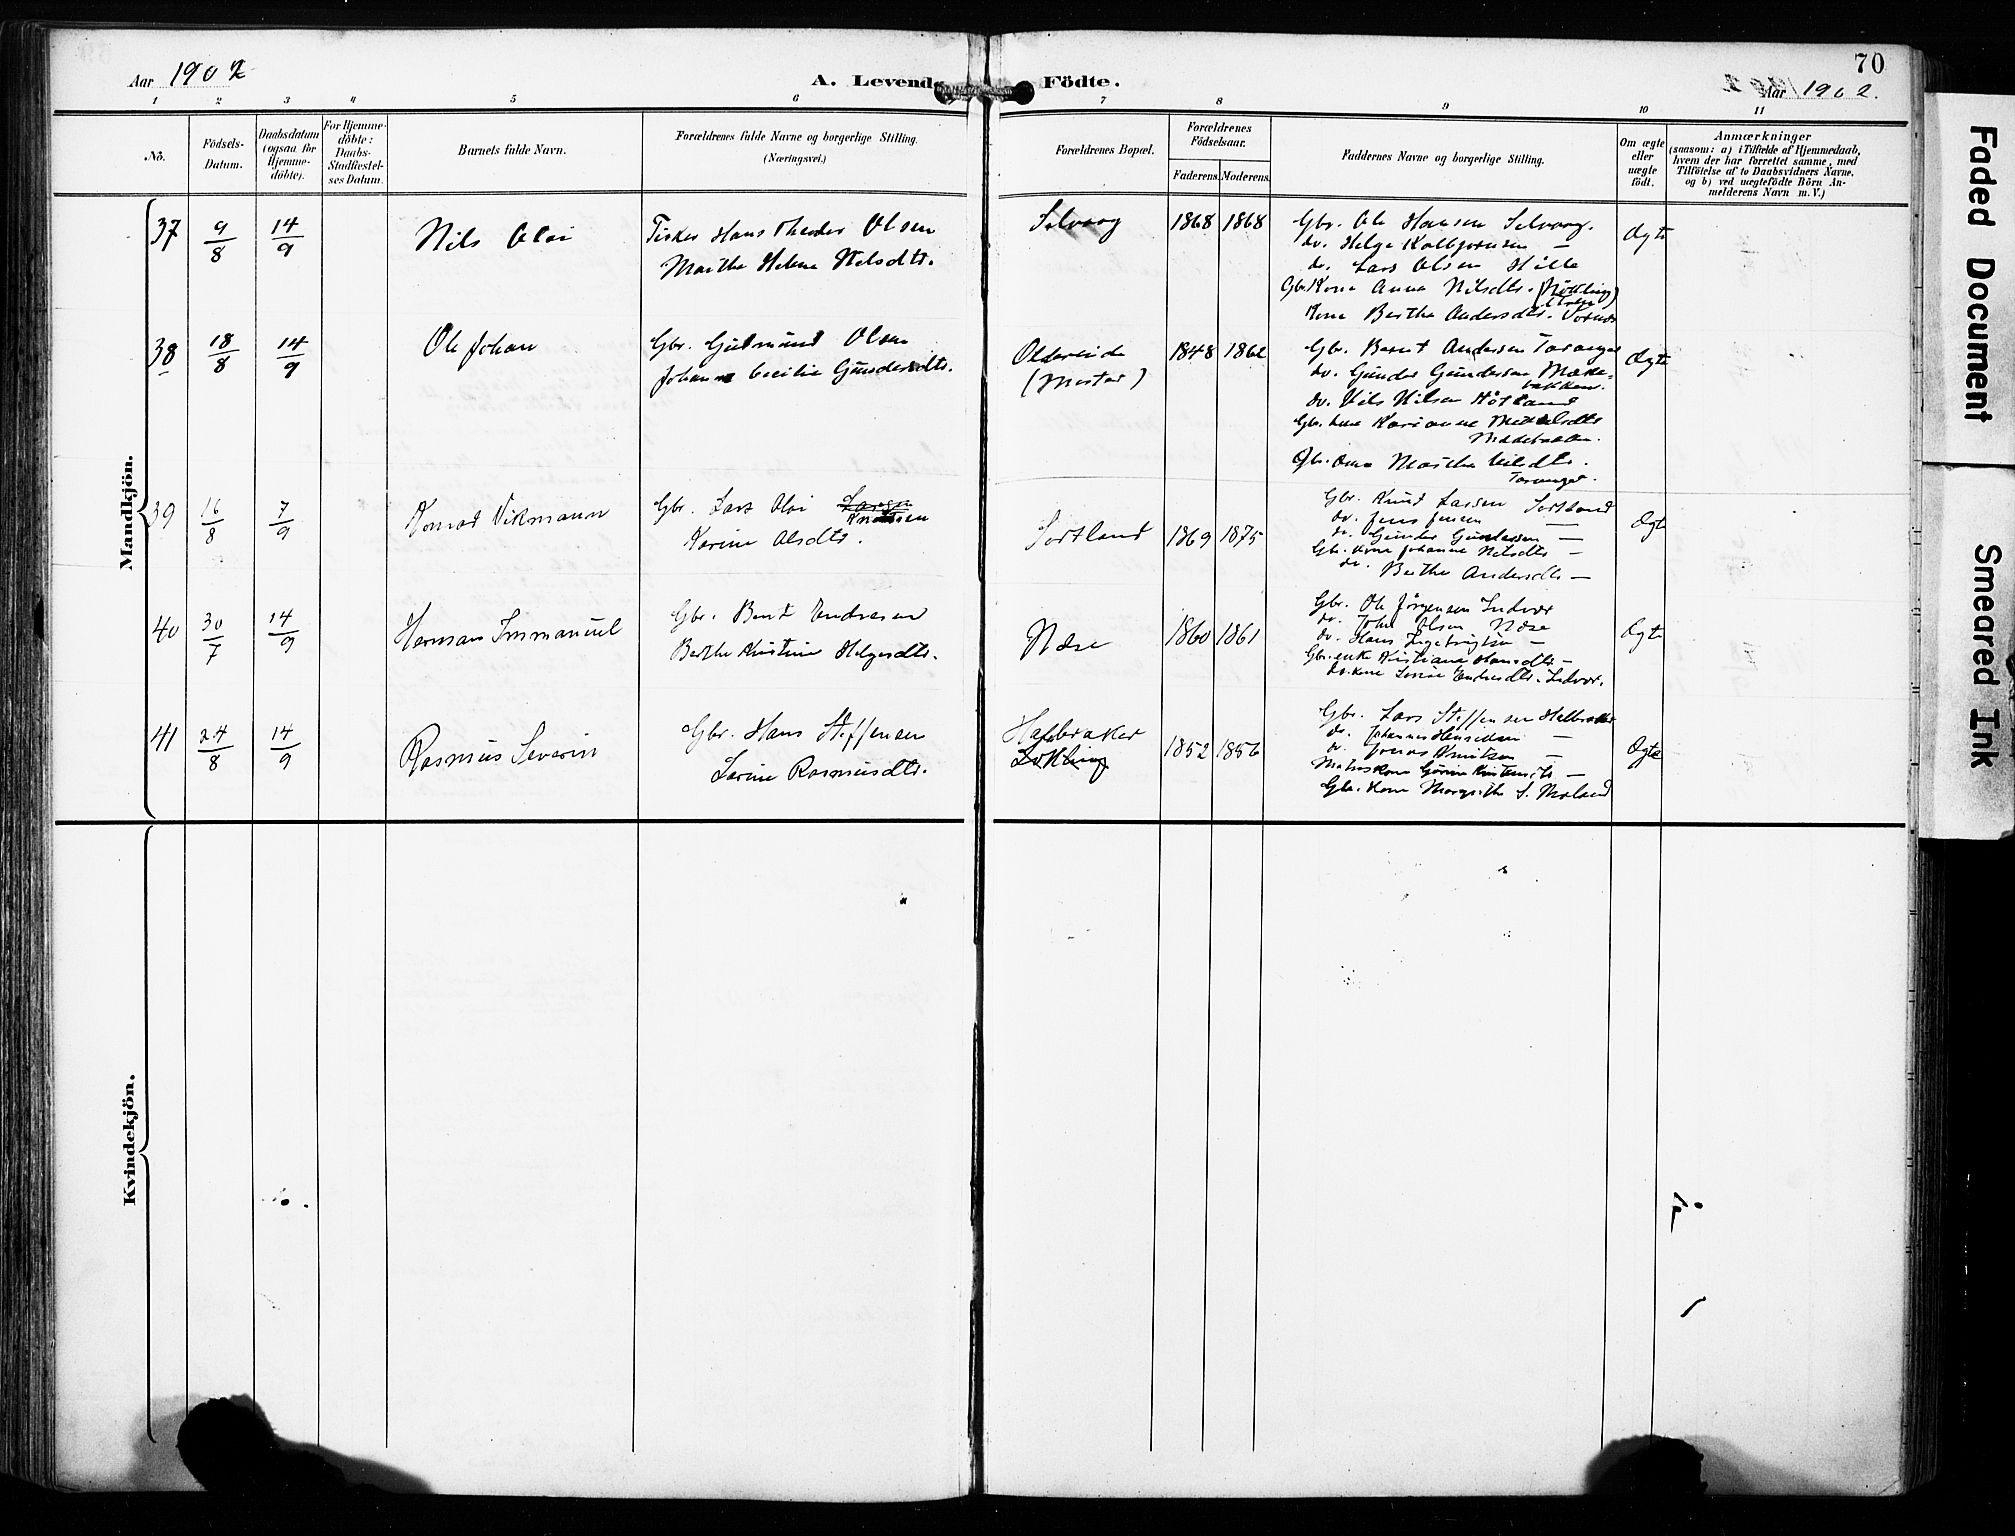 Aar 1902
A. Levende Födte.
70
Aar 1902.
1 2 3 4 5 6 7 8 9 10 11
No.
Födsels-
Datum.
Daabsdatum
(ogsaa for
Hjemme-
döbte).
For Hjemme-
döbte:
Daabs-
Stadfæstel-
ses Datum.
Barnets fulde Navn.
Forældrenes fulde Navne og borgerlige Stilling.
(Næringsvei.)
Forældrenes Bopæl.
Forældrenes
Födselsaar.
Faderens. Moderens.
Faddernes Navne og borgerlige Stilling.
Om ægte
eller
uægte
födt.
Anmærkninger
(saasom: a) i Tilfælde af Hjemmedaab,
hvem der har forrettet samme, med
Tilföielse af to Daabsvidners Navne,
og b) ved uægtefödte Börn An-
melderens Navn m. V.)
Mandkjön.
37 9/8 14/9 Nils Olai
Fisker Hans Theodor Olsen
Martha Helene Nilsdtr.
Selvaag 1868 1868
Gbr. Ole Hansen Selvaag.
do. Helge Kolbjørnsen —
do. Lars Olsen Hille
Gbr. Kone Anna Nilsdtr.
Kone Berthe Andersdtr.
Ægte
38 18/8 14/9 Ole Johan
Gbr. Gudmund Olsen
Johanne Cecilie Gundersdtr.
(Moster) 1848 1862
Gbr. Bernt Andersen Toranger
do. Gunder Gundersen
do. Nils Nilsen
Gbr. kone Karianne
Gbr. kone Martha Nilsdtr.
Toranger.
Ægte
39 16/8 7/9 Konrad Vikmann
Gbr. Lars Olai Larsen
Knutsen
Karine Olsdtr.
Sortland 1869 1875
Gbr. Knut Larsen Sortland
do. Jens Jensen —
do. Gunder Gundersen —
Gbr. kone Johanne Nilsdtr —
do. Berthe Andersdtr —
Ægte
40 30/7 14/9 Herman Immanuel
Gbr. Bernt Endresen
Berthe Kristine Helgesdtr.
Næse 1860 1861
Gbr. Ole Jørgensen Indvær
do. John Olsen Næse
do. Hans Ingebrigtsen —
Gbr. enke Kristiane Hansdtr —
do. kone Serine Endresdtr. Indvær.
Ægte
41 24/8 14/9 Rasmus Severin
Gbr. Hans Steffensen
Serine Rasmusdtr.
1852 1856
Gbr. Lars Steffensen
do. Johannes —
do. Jonas Knutsen —
Gbr. Kone Margrethe S. Moland
Ægte
Kvindekjön.
Faded Document
Smeared Ink